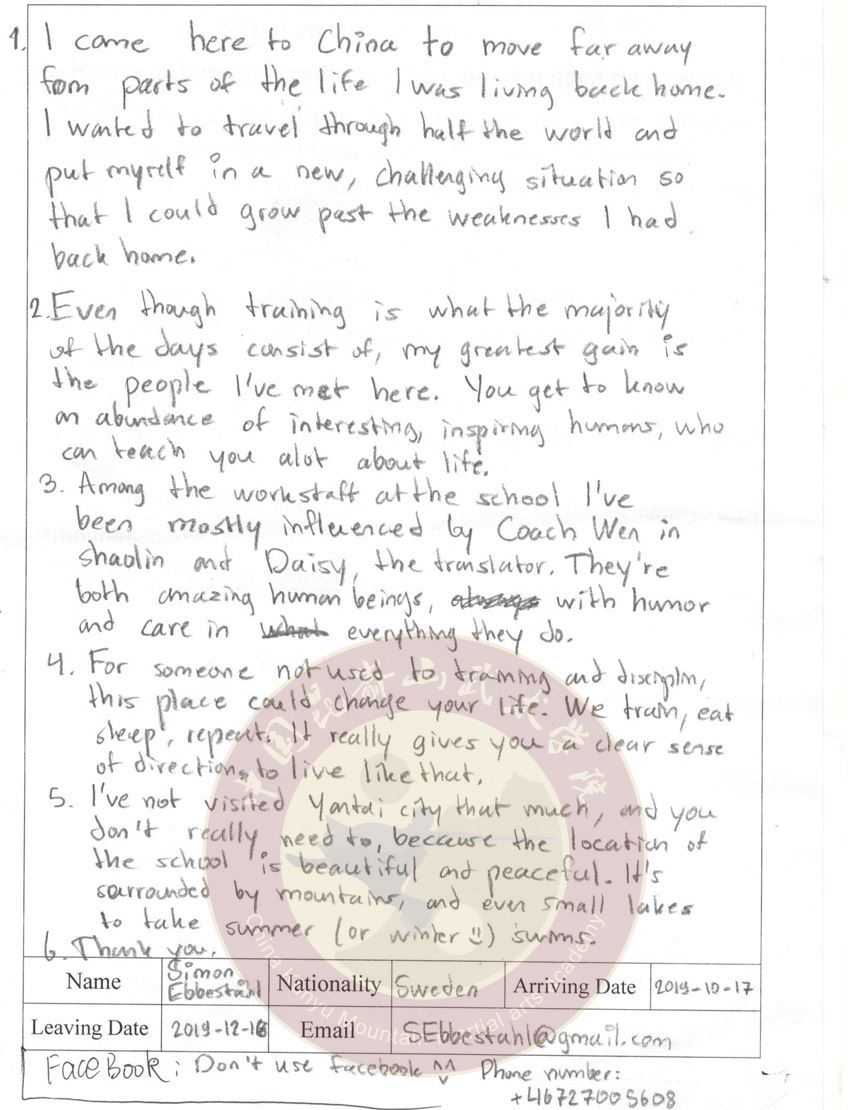 1. I came here to China to move far away
fom parts of the life I was living back home.
I wanted to travel through half the world and
put myself in a new, challenging situation so
that I could grow past the weaknesses I had
back home.
2. Even though training is what the majority
of the days consist of, my greatest gain is
the people I've met here. You get to know
an abundance of interesting, inspiring humans, who
can teach you alot about life.
3. Among the workstaff at the school I've
been mostly influenced by Coach Wen in
shaolin and Daisy, the translator. They're
both amazing human beings, with humor
and care in what everything they do.
4. For someone not used to training and disciplin,
this place could change your life. We train, eat
sleep, repeat. It really gives you a clear sense
of direction, to live like that.
5. I've not visited Yantai city that much, and you
don't really need to, because the location of
the school is beautiful and peaceful. It's
sarrounded by mountains, and even small lakes
to take summer (or winter :)) swims.
6. Thank you.
Name Simon Ebbestahl Nationality Sweden Arriving Date 2019-10-17
Leaving Date 2019-12-16 Email SEbbestahl@gmail.com
FaceBook: Don't use facebook ^^ Phone number:
+46727005608
中国昆嵛山武术学院
China Kunyu Mountain martial arts academy